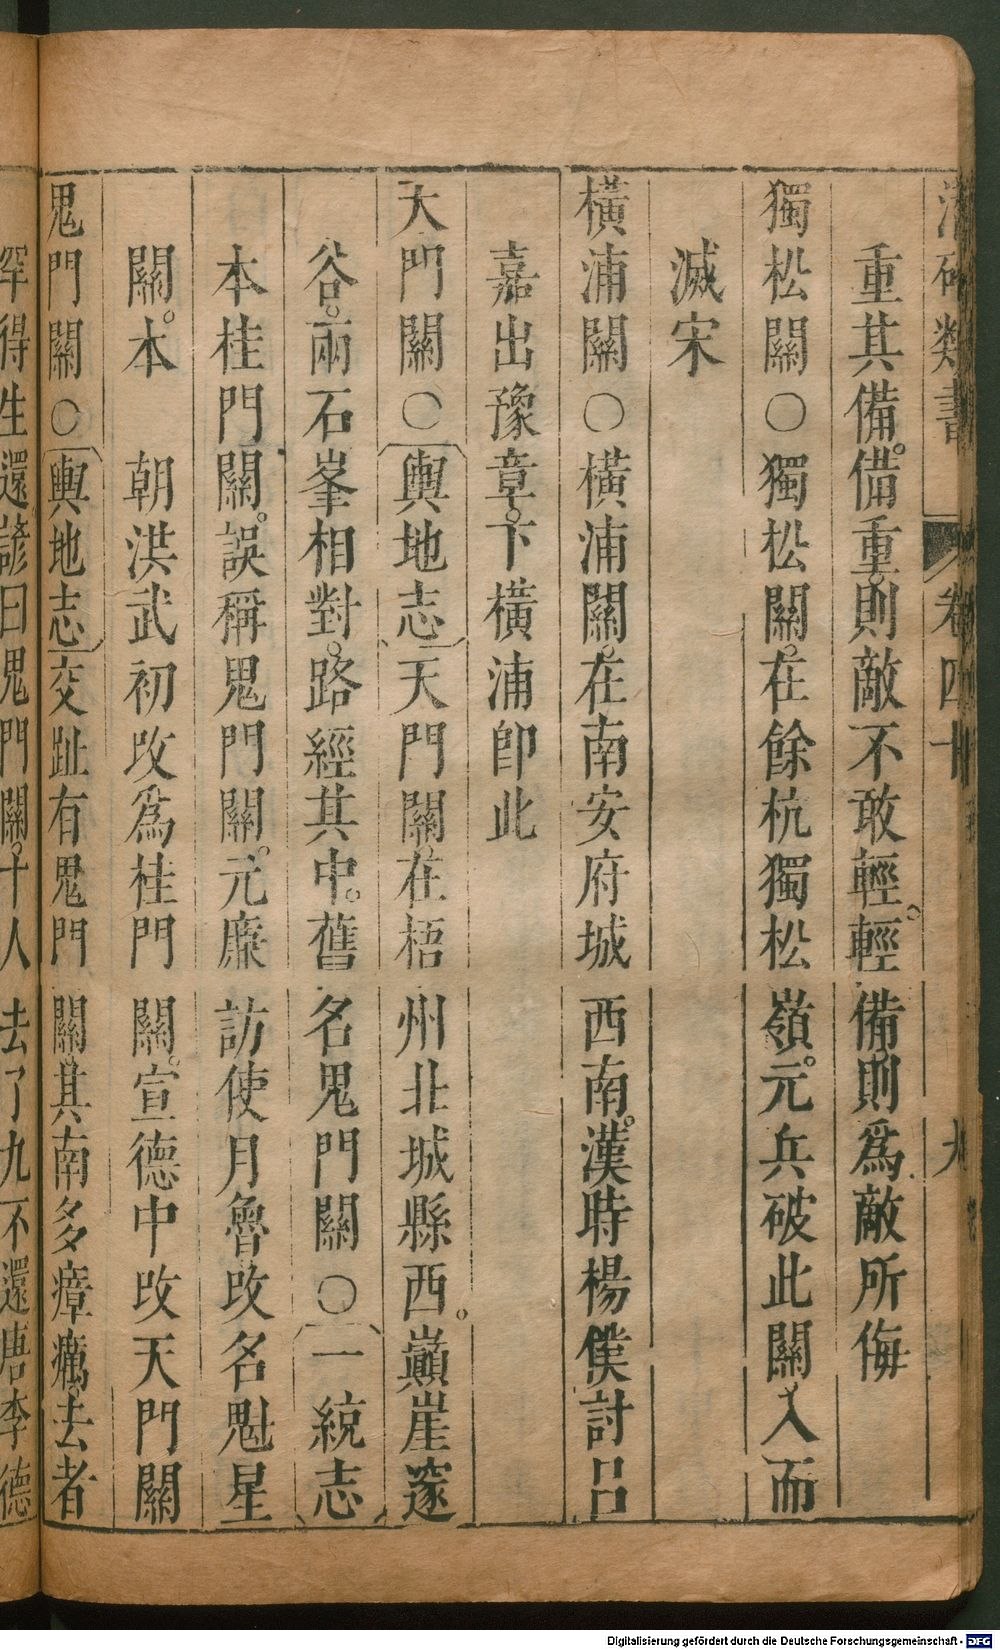 潛確類書 卷四十 九
重其備。備重則敵不敢輕。輕備則爲敵所侮
獨松關○獨松關。在餘杭獨松嶺。元兵破此關入而
滅宋
橫浦關○橫浦關。在南安府城西南。漢時楊僕討呂
嘉出豫章。下橫浦即此
天門關○輿地志天門關。在梧州北城縣西。巔崖邃
谷。兩石峯相對。路經其中。舊名鬼門關○一統志
本桂門關。誤稱鬼門關。元廉訪使月魯改名魁星
關。本朝洪武初改爲桂門關。宣德中改天門關
鬼門關○輿地志交趾有鬼門關。其南多瘴癘。去者
罕得生還諺曰鬼門關。十人去了九不還唐李德
Digitalisierung gefördert durch die Deutsche Forschungsgemeinschaft - DFG